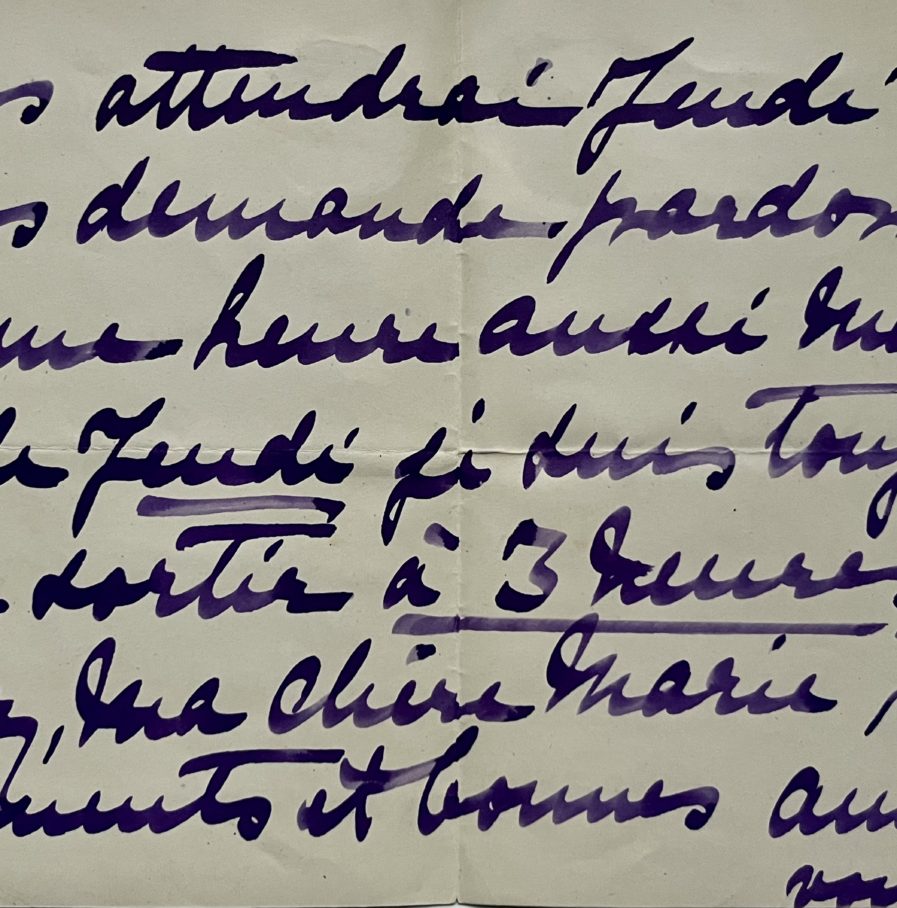 s attendrai Jeudi
s demande pardon
une heure aussi
Jeudi je suis
sortir à 3 heures
ma chère Marie,
ments et bonnes am
vou